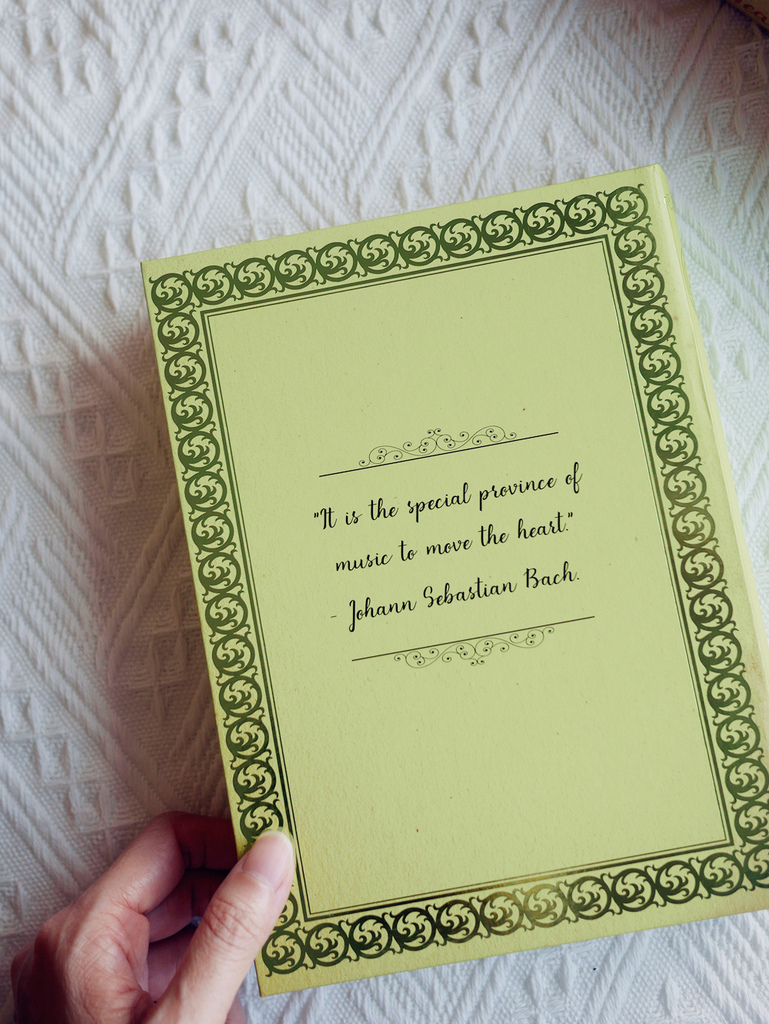 "It is the special province of
music to move the heart."
- Johann Sebastian Bach.